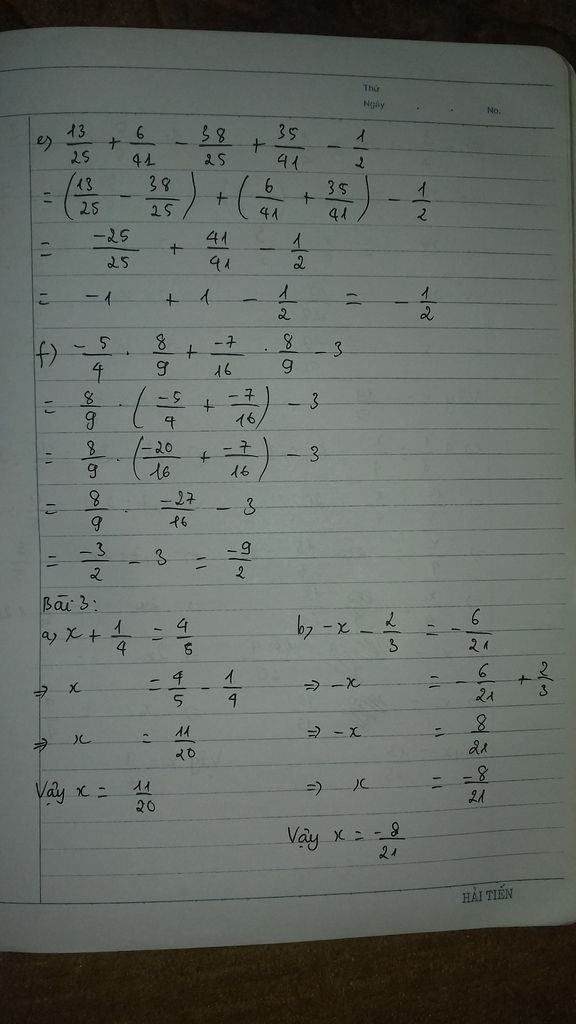 Thứ
Ngày . . No.
e) 13/25 + 6/41 - 38/25 + 35/41 - 1/2
= (13/25 - 38/25) + (6/41 + 35/41) - 1/2
= -25/25 + 41/41 - 1/2
= -1 + 1 - 1/2 = -1/2
f) -5/4 . 8/9 + -7/16 . 8/9 - 3
= 8/9 . (-5/4 + -7/16) - 3
= 8/9 . (-20/16 + -7/16) - 3
= 8/9 . -27/16 - 3
= -3/2 - 3 = -9/2
Bài 3:
a) x + 1/4 = 4/5
⇒ x = 4/5 - 1/4
⇒ x = 11/20
Vậy x = 11/20
b) -x - 2/3 = -6/21
⇒ -x = -6/21 + 2/3
⇒ -x = 8/21
⇒ x = -8/21
Vậy x = -8/21
HẢI TIẾN